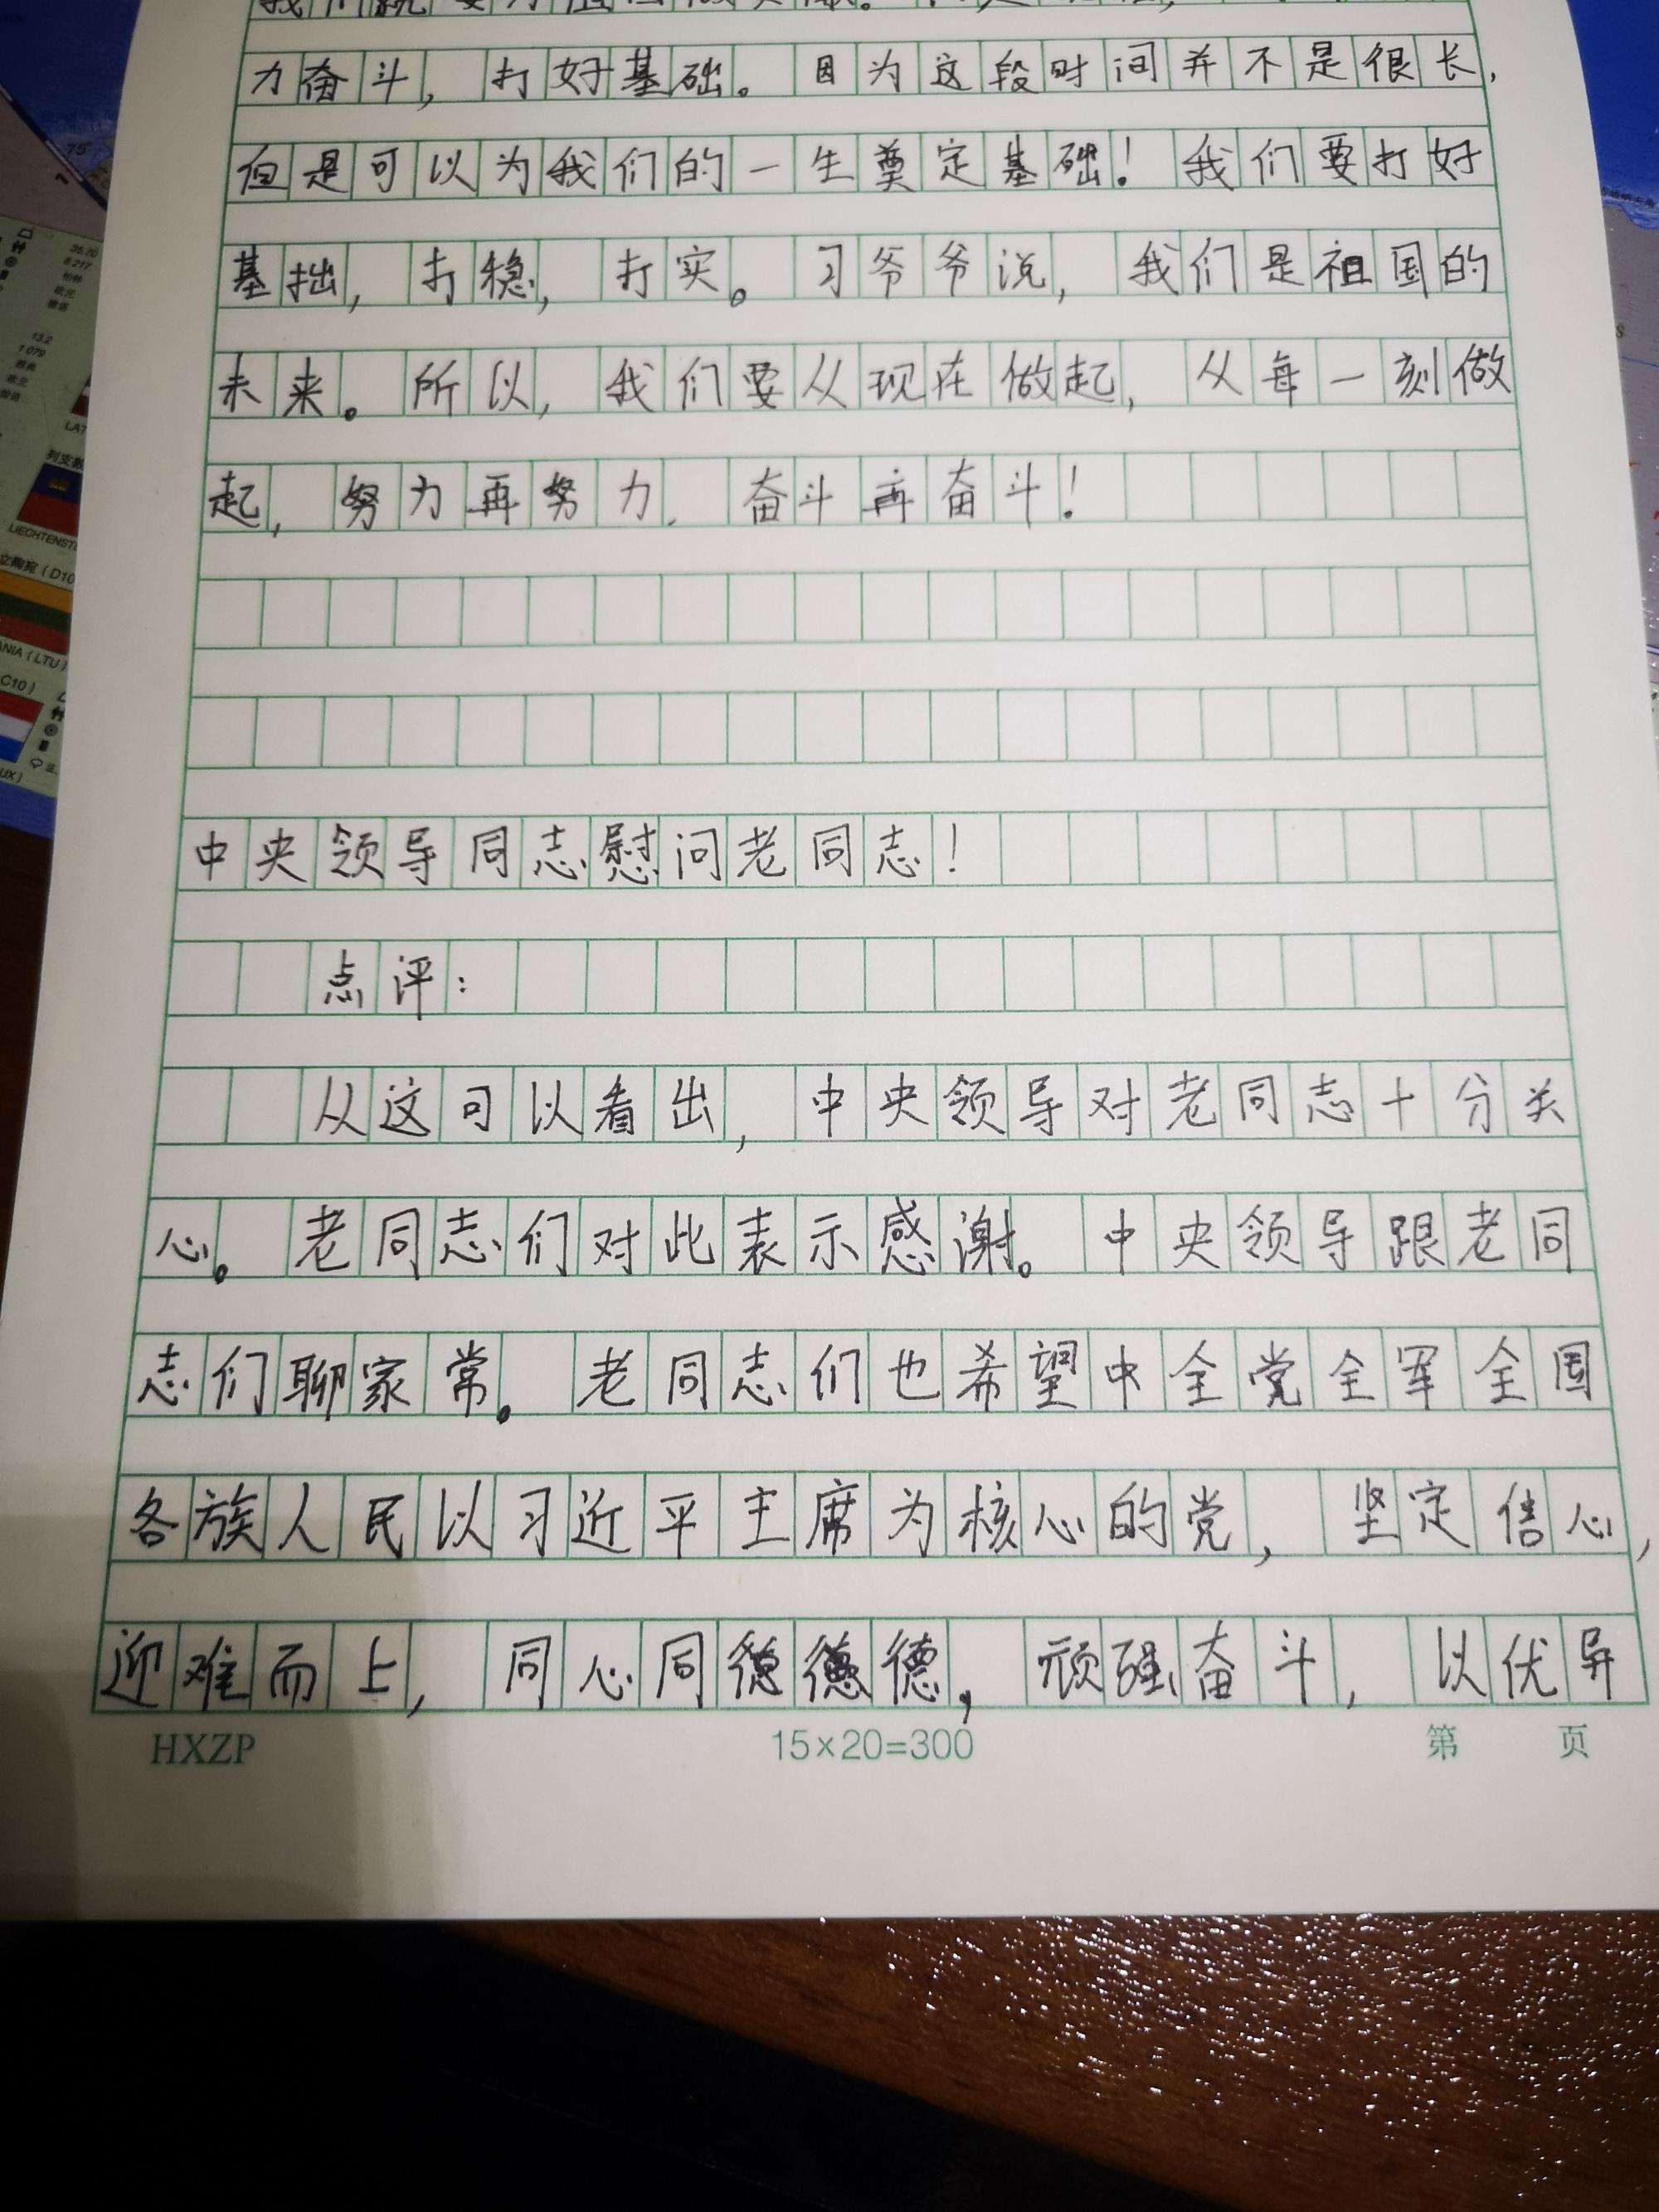 力奋斗，打好基础。因为这段时间并不是很长，
但是可以为我们的一生奠定基础！我们要打好
基拙，打稳，打实。习爷爷说，我们是祖国的
未来。所以，我们要从现在做起，从每一刻做
起，努力再努力，奋斗再奋斗！
中央领导同志慰问老同志！
点评：
从这可以看出，中央领导对老同志十分关
心。老同志们对此表示感谢。中央领导跟老同
志们聊家常。老同志们也希望中全党全军全国
各族人民以习近平主席为核心的党，坚定信心，
迎难而上，同心同德德德，顽强奋斗，以优异
HXZP 15×20=300 第 页
75°
35.70
8.217
柏林
欧元
德语
13.2
1 079
欧元
LAT
列支敦
LIECHTENST
立陶宛（D10
ANIA（LTU）
C10）
UX）